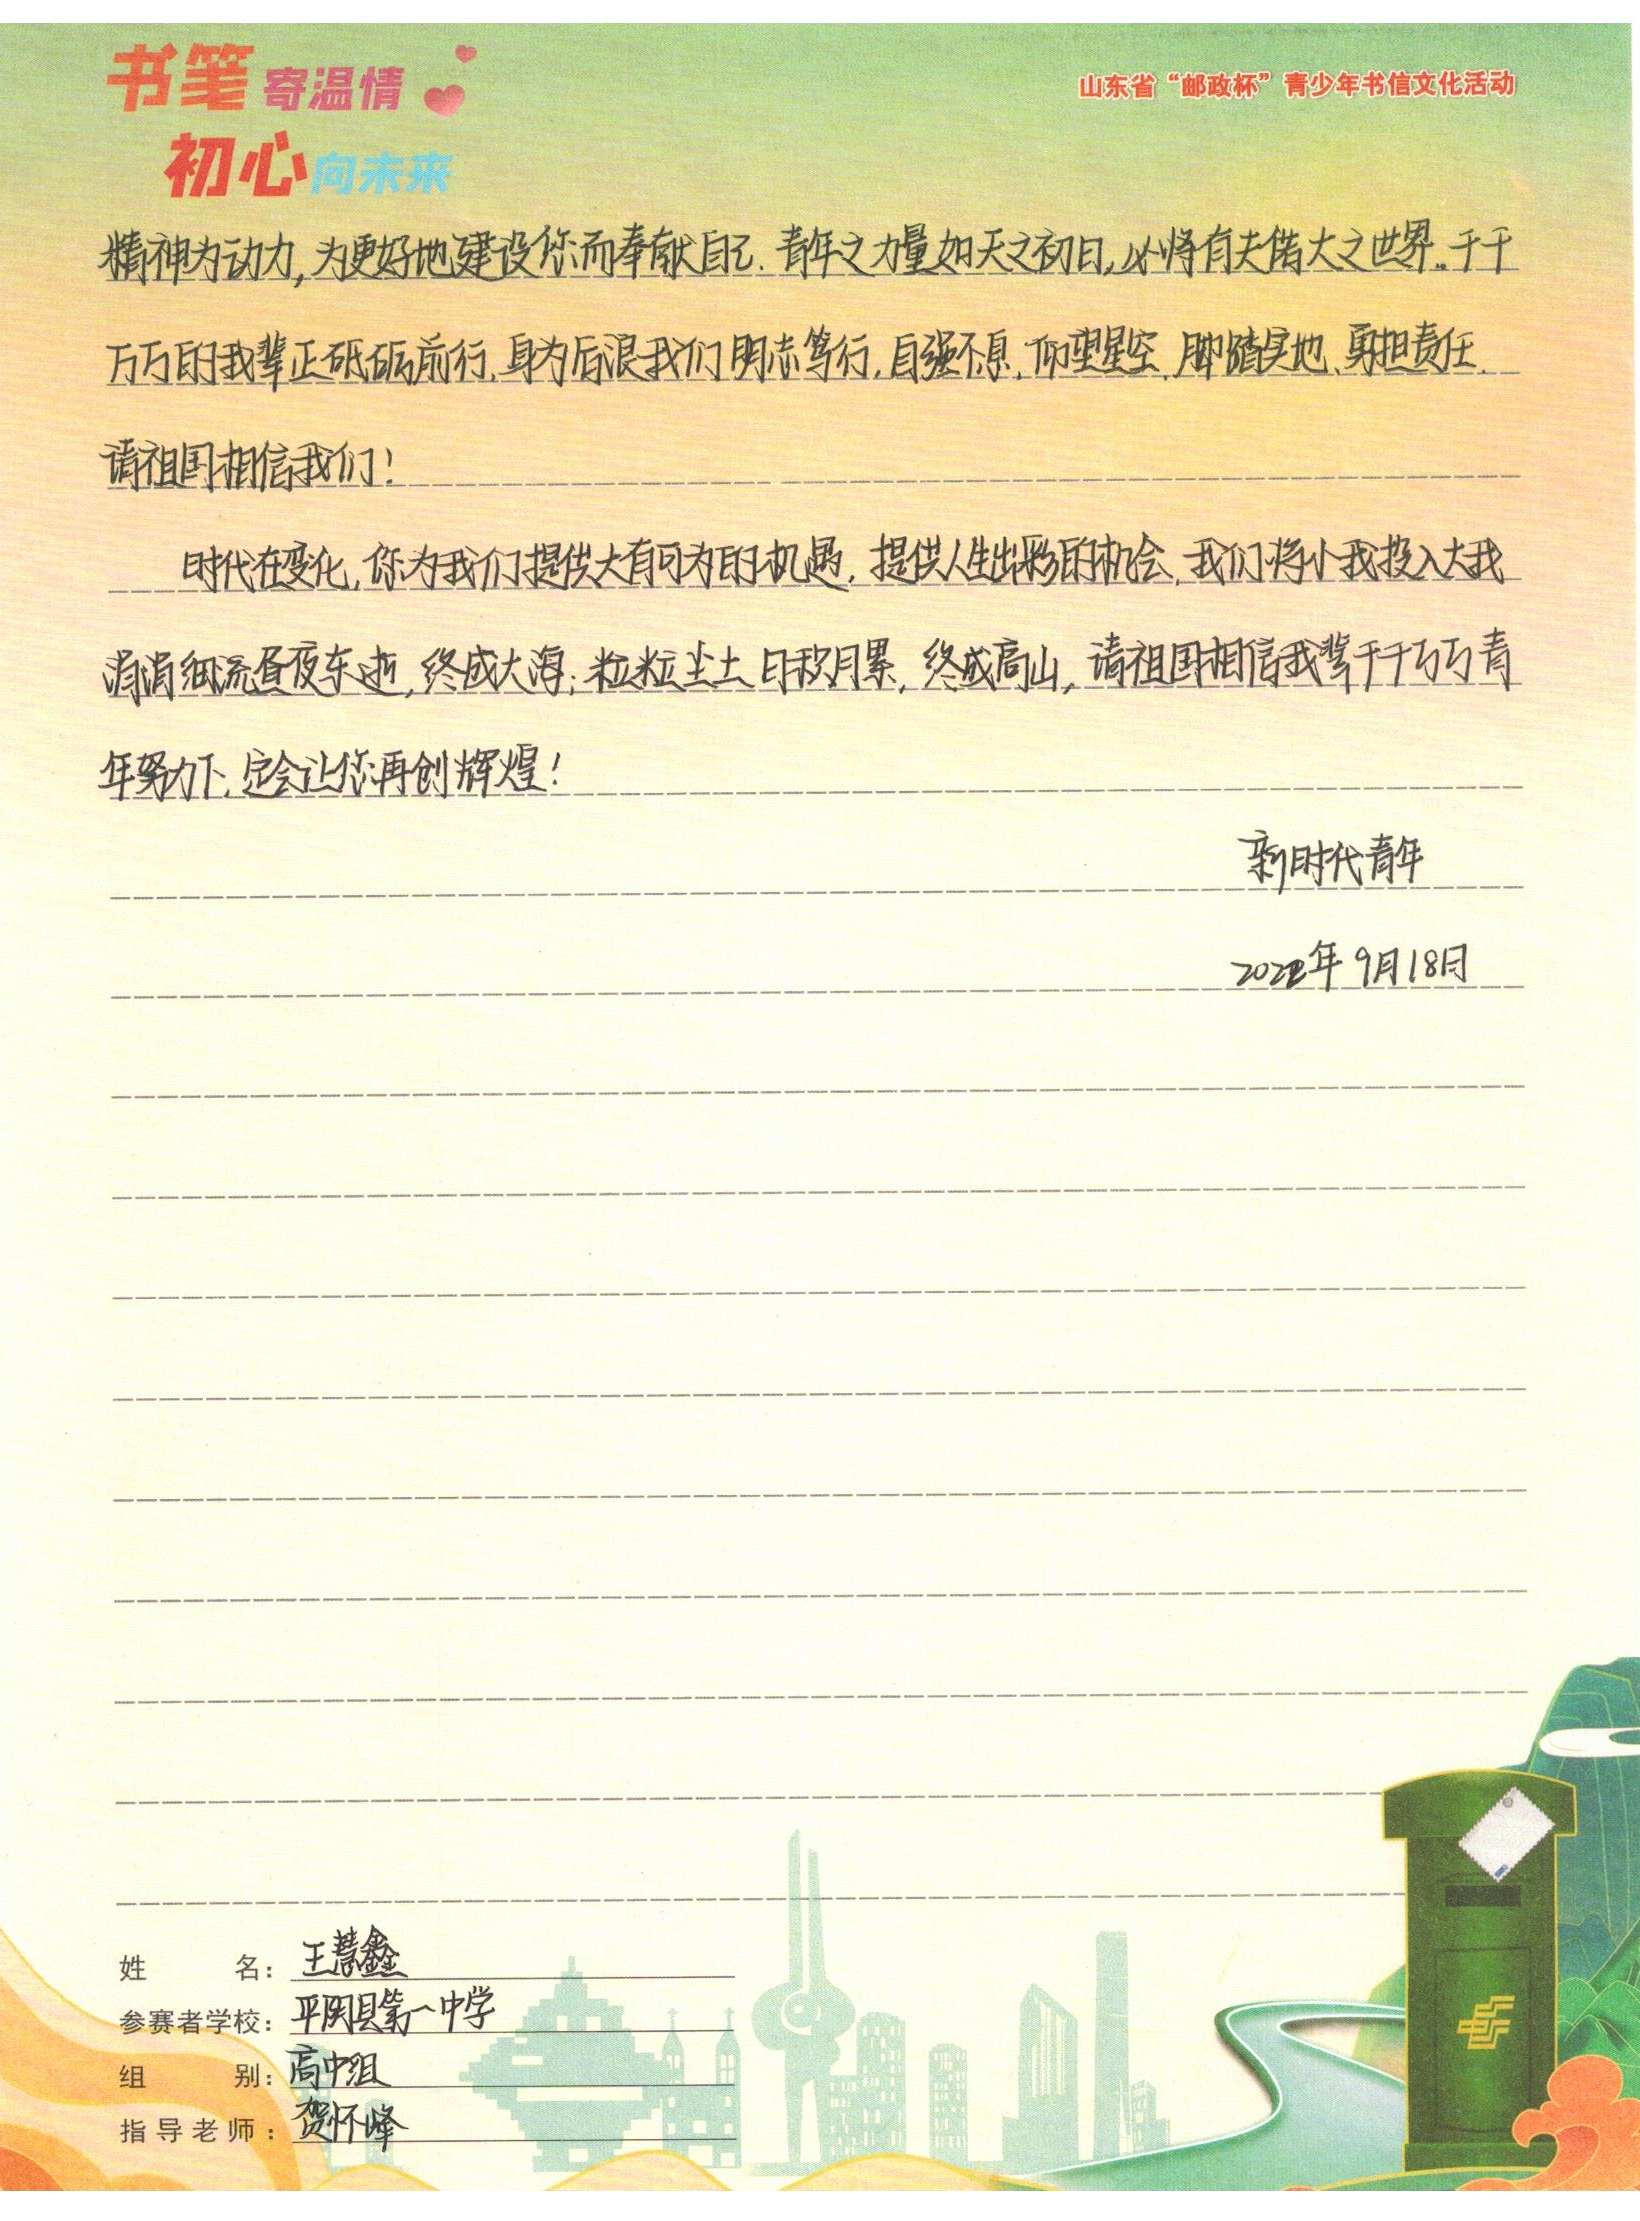 书笔寄温情
初心向未来
山东省“邮政杯”青少年书信文化活动
精神为动力,为更好地建设您而奉献自己.青年之力量如天之初日,必将有夫偌大之世界.千千
万万的我辈正砥砺前行,身为后浪我们明志笃行,自强不息,仰望星空,脚踏实地、勇担责任.
请祖国相信我们!
时代在变化,你为我们提供大有可为的机遇,提供人生出彩的机会,我们将小我投入大我
涓涓细流昼夜东逝,终成大海;粒粒尘土日积月累,终成高山,请祖国相信我辈千千万万青
年努力下,定会让您再创辉煌!
新时代青年
2022年9月18日
姓名:王慧鑫
参赛者学校:平阴县第一中学
组别:高中组
指导老师:贺怀峰